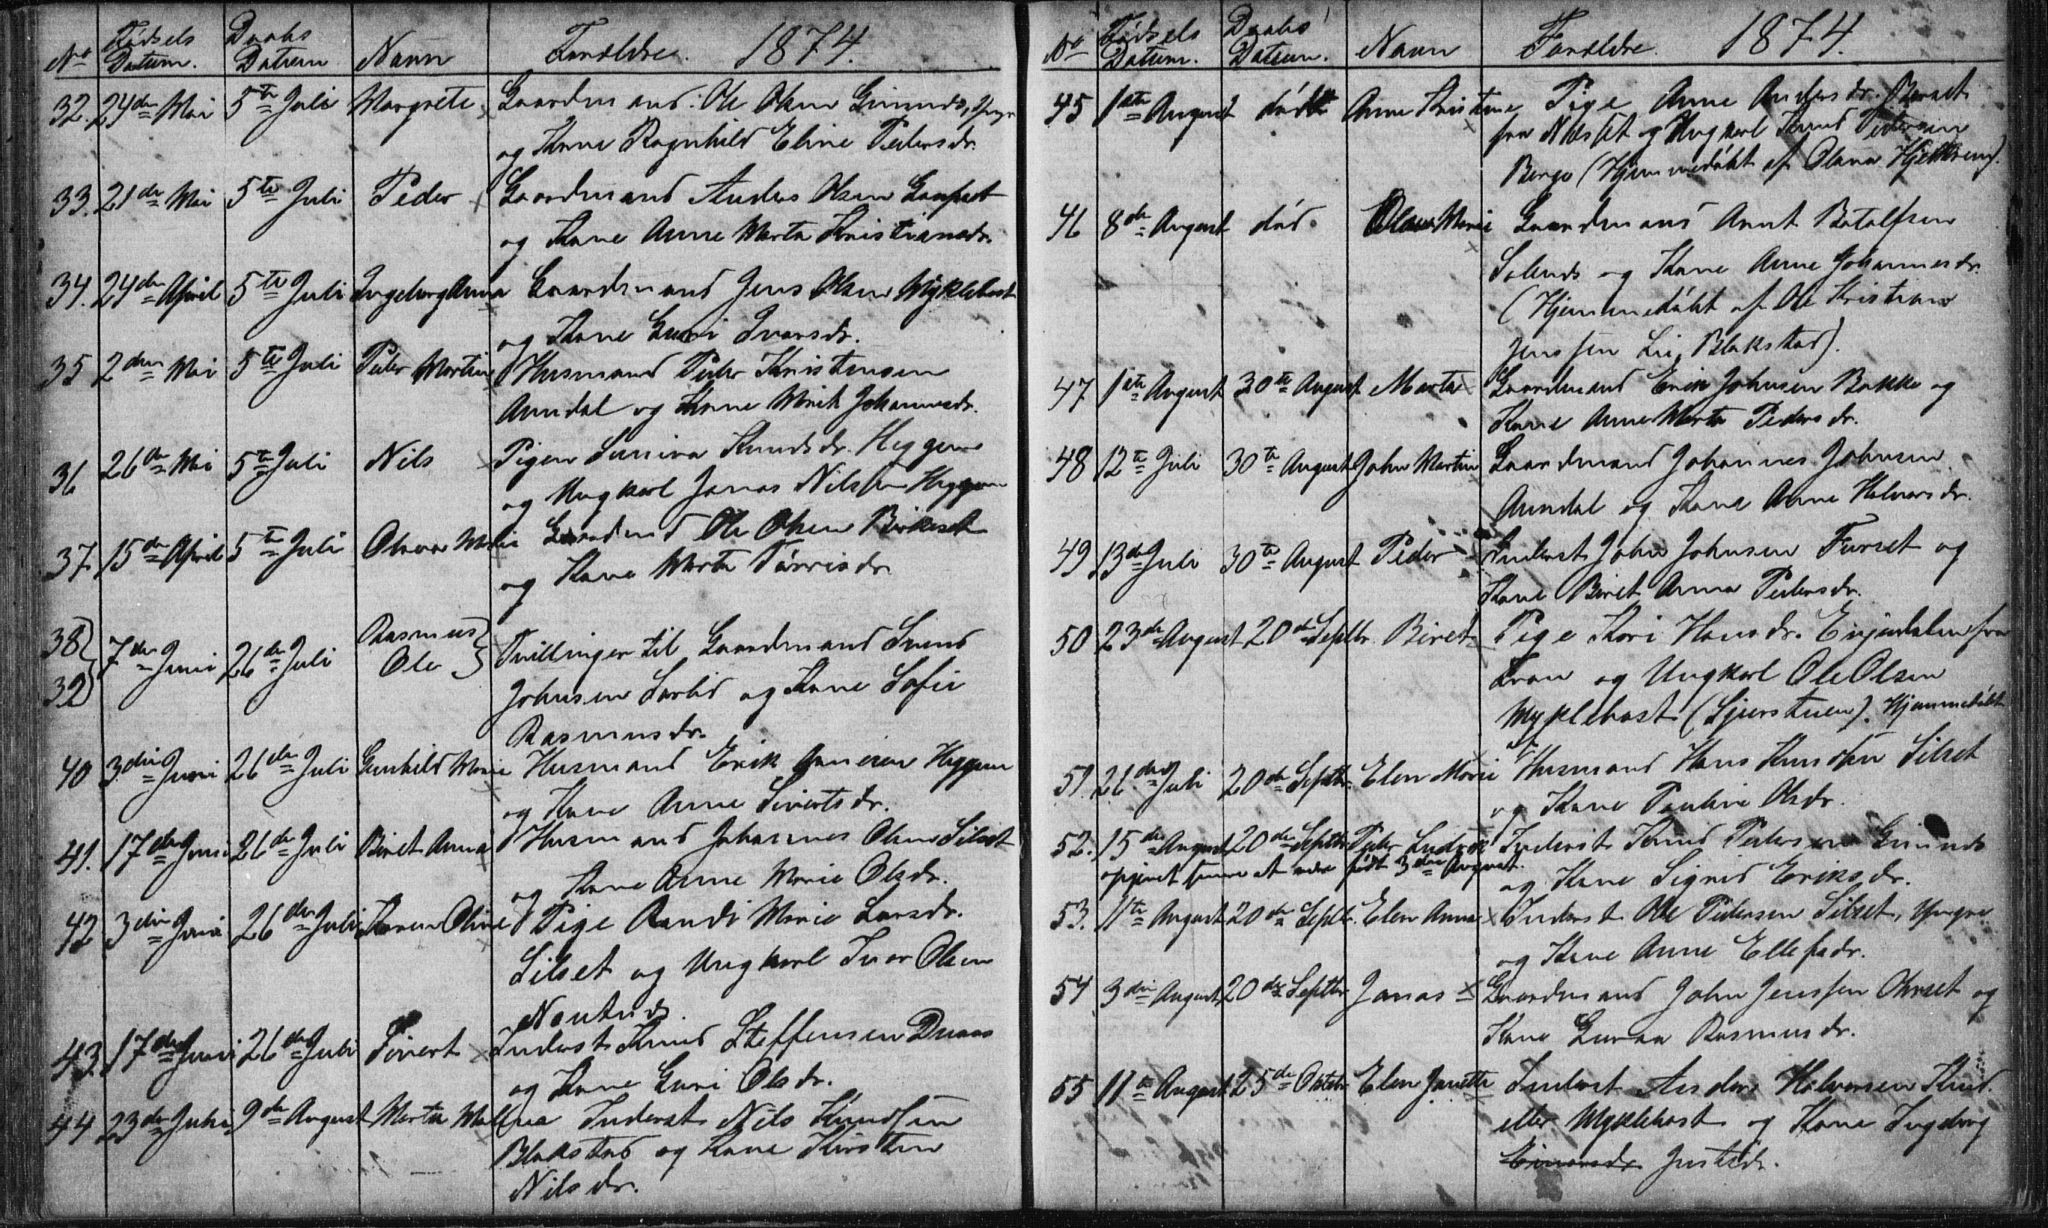 No Fødsels Datum. Daabs Datum Navn Forældre. 1874.
32. 24de Mai 5te Juli Margrete Gaardmand Ole Olsen
og Kone Ragnhild Eline Pedersdr.
33. 21de Mai 5te Juli Peder Gaardmand Anders Olsen
og Kone Anne Marta Kristiansdr.
34. 24de April 5te Juli Ingeborg Anna Gaardmand Jens Olsen Myklebost
og Kone Guri Ivarsdr.
35 2den Mai 5te Juli Peder Martin Husmand Peder Kristensen
Aundal og Kone Marit Johannesdr.
36 26de Mai 5te Juli Nils Pigen Synniva Knudsdr. Heggem
og Ungkarl Jonas Nilssen Heggem
37. 15de April 5te Juli Olava Marie Gaardmd Ole Olsen Birkeset
og Kone Marta Tørrisdr.
38 39 7de Juni 26de Juli Rasmus Ole Tvillinger til Gaardmand Svend
Johnsen og Kone Sofie
Rasmusdr.
40 3die Juni 26de Juli Gunhild Marie Husmand Erik Heggem
og Kone Anne Sivertsdr.
41. 17de Juni 26de Juli Beret Anna Husmand Johannes Olsen Silset
og Kone Anne Marie Olsdr.
42 3die Juni 26de Juli Karen Oline Pige Randi Marie Larsdr.
Silset og Ungkarl Ivar Olsen
43. 17de Juni 26de Juli Sivert Inderst Knud Steffensen
og Kone Guri Olsdr.
44 23de Juli 9de August Marta Inderst Nils Knudsen
Blakstad og Kone Kirsten
Nilsdr.
No Fødsels Datum. Daabs Datum. Navn Forældre. 1874.
45 1ste August død Anne Kristine Pige Anne Andersdr.
fra Nesset og Ungkarl Knud Pedersen
Berge (Hjemmedøbt af Olava
46 8de August død. Olava Marie Gaardmand Arnt Botolfsen
Solends og Kone Anne Johannesdr.
(Hjemmedøbt af Ole Kristian
Jenssen Li, Blakstad).
47 1ste August 30te August Marta Gaardmand Erik Johnsen Bakke og
Kone Anne Marta Pedersdr.
48 12te Juli 30te August John Martin Gaardmand Johannes Johnsen
Aundal og Kone Anne Halvorsdr.
49 13de Juli 30te August Peder Inderst John Johnsen Furset og
Kone Beret Anna Pedersdr.
50 23de August 20de Septbr. Beret Pige Kari Hansdr. fra
og Ungkarl Ole Olsen
Myklebost Hjemmedøbt
51. 26de Juli 20de Septbr. Elen Marie Husmand Hans Knudsen Silset
og Kone Pauline Olsdr.
52. 15de August 20de Septbr. Peder Ludvig Inderst Knud Pedersen Gimnes
opgivet senere at være født 3die August. og Kone Sigrid Eriksdr.
53. 11te August 20de Septb. Elen Anna Inderst Ole Pedersen Silset, yngre
og Kone Anne Ellefsdr.
54 3die August 20de Septbr Jonas Gaardmand John Jenssen Orset og
Kone Guraa Rasmusdr.
55 11te August 25de Oktobr Elen Janetta Inderst Anders Halvorsen
eller Myklebost og Kone Ingeborg
Einarsdr Justsdr.